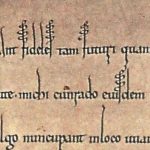 fideles tam futuri quam
te. michi cunrado eiusdem
nuncupant in loco